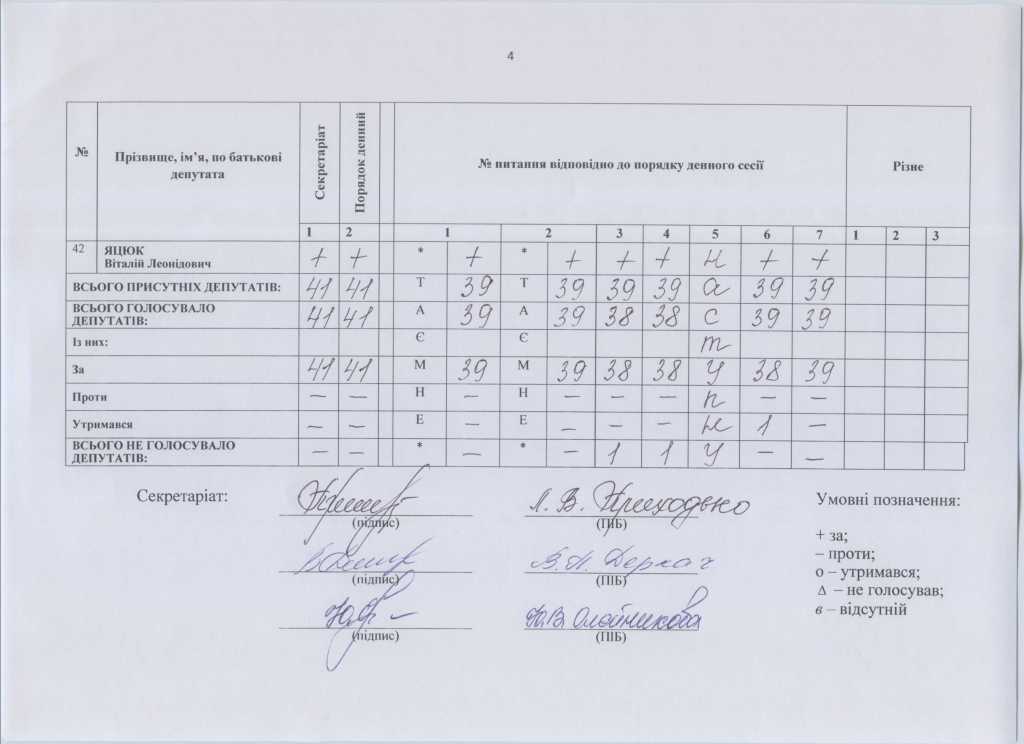 4
№ Прізвище, ім’я, по батькові депутата Секретаріат Порядок денний № питання відповідно до порядку денного сесії Різне
1 2 1 2 3 4 5 6 7 1 2 3
42 ЯЦЮК Віталій Леонідович + + * + * + + + н + +
ВСЬОГО ПРИСУТНІХ ДЕПУТАТІВ: 41 41 Т 39 Т 39 39 39 а 39 39
ВСЬОГО ГОЛОСУВАЛО ДЕПУТАТІВ: 41 41 А 39 А 39 38 38 с 39 39
Із них: Є Є т
За 41 41 М 39 М 39 38 38 у 38 39
Проти – – Н – Н – – – п – –
Утримався – – Е – Е – – – н 1 –
ВСЬОГО НЕ ГОЛОСУВАЛО ДЕПУТАТІВ: – – * – * – 1 1 у – –
Секретаріат:
(підпис) Л. В. Приходько (ПІБ)
(підпис) В.П. Деркач (ПІБ)
(підпис) Ю.В Олейникова (ПІБ)
Умовні позначення:
+ за;
– проти;
о – утримався;
Δ – не голосував;
в – відсутній